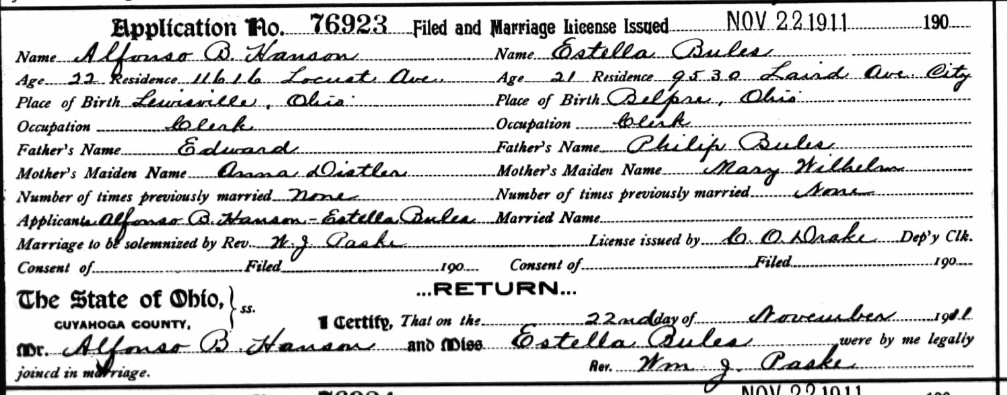 Application No. 76923 Filed and Marriage License Issued NOV 22 1911 190
Name Alfonso B. Hanson Name Estella Bules
Age 22 Residence 11616 Locust Ave. Age 21 Residence 9530 Laird Ave. City
Place of Birth Lewisville, Ohio Place of Birth Belpre, Ohio
Occupation Clerk Occupation Clerk
Father's Name Edward Father's Name Philip Bules
Mother's Maiden Name Anna Distler Mother's Maiden Name Mary Wilhelm
Number of times previously married None Number of times previously married None
Applicants Alfonso B. Hanson - Estella Bules Married Name
Marriage to be solemnized by Rev. W. J. Paske License issued by C. O. Drake Dep'y Clk.
Consent of Filed 190 Consent of Filed 190
...RETURN...
The State of Ohio, } ss.
CUYAHOGA COUNTY,
I Certify, That on the 22nd day of November 1911
Mr. Alfonso B. Hanson and Miss Estella Bules were by me legally
joined in marriage. Rev. Wm J. Paske
NOV 22 1911